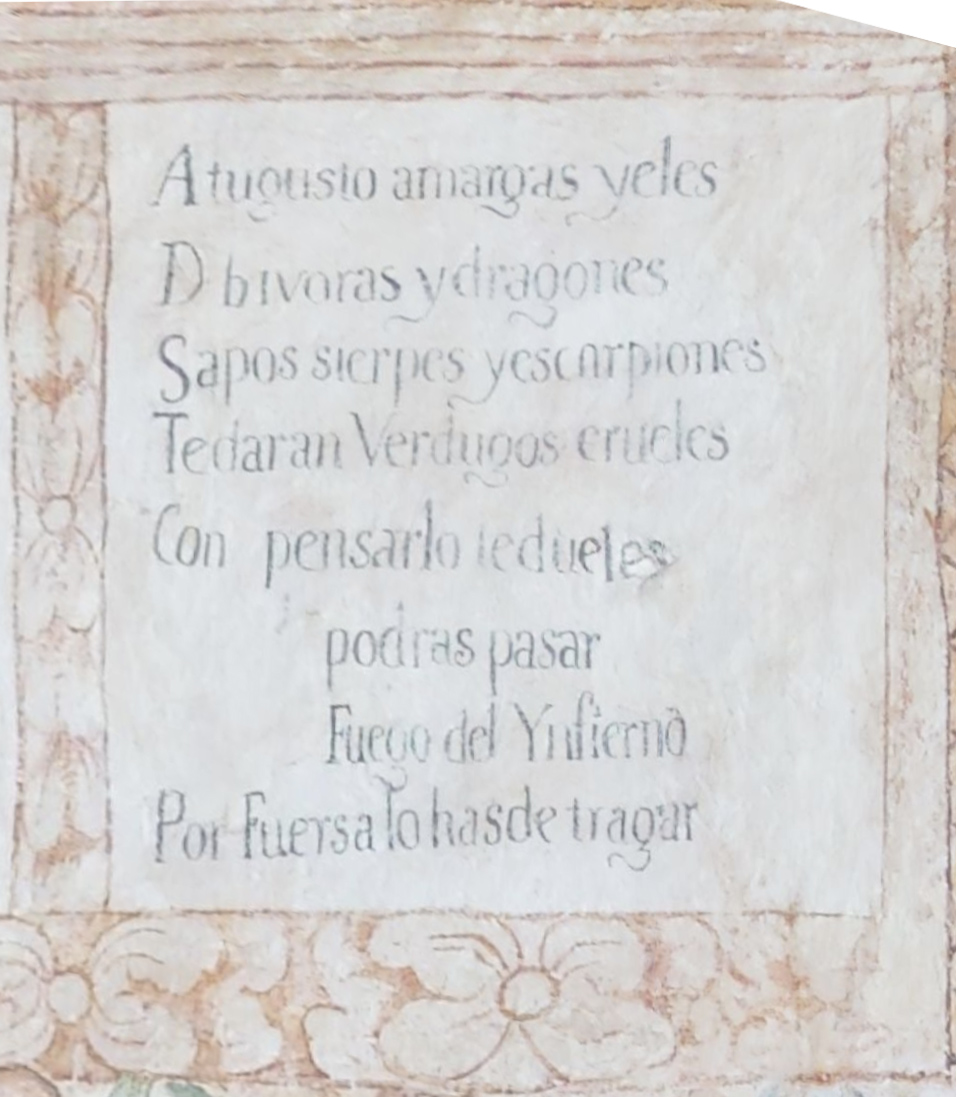 Atugusto amargas yeles
D bivoras ydragones
Sapos sierpes yescorpiones
Tedaran Verdugos crueles
Con pensarlo tedueles
podras pasar
Fuego del Ynfierno
Por Fuersa lo hasde tragar